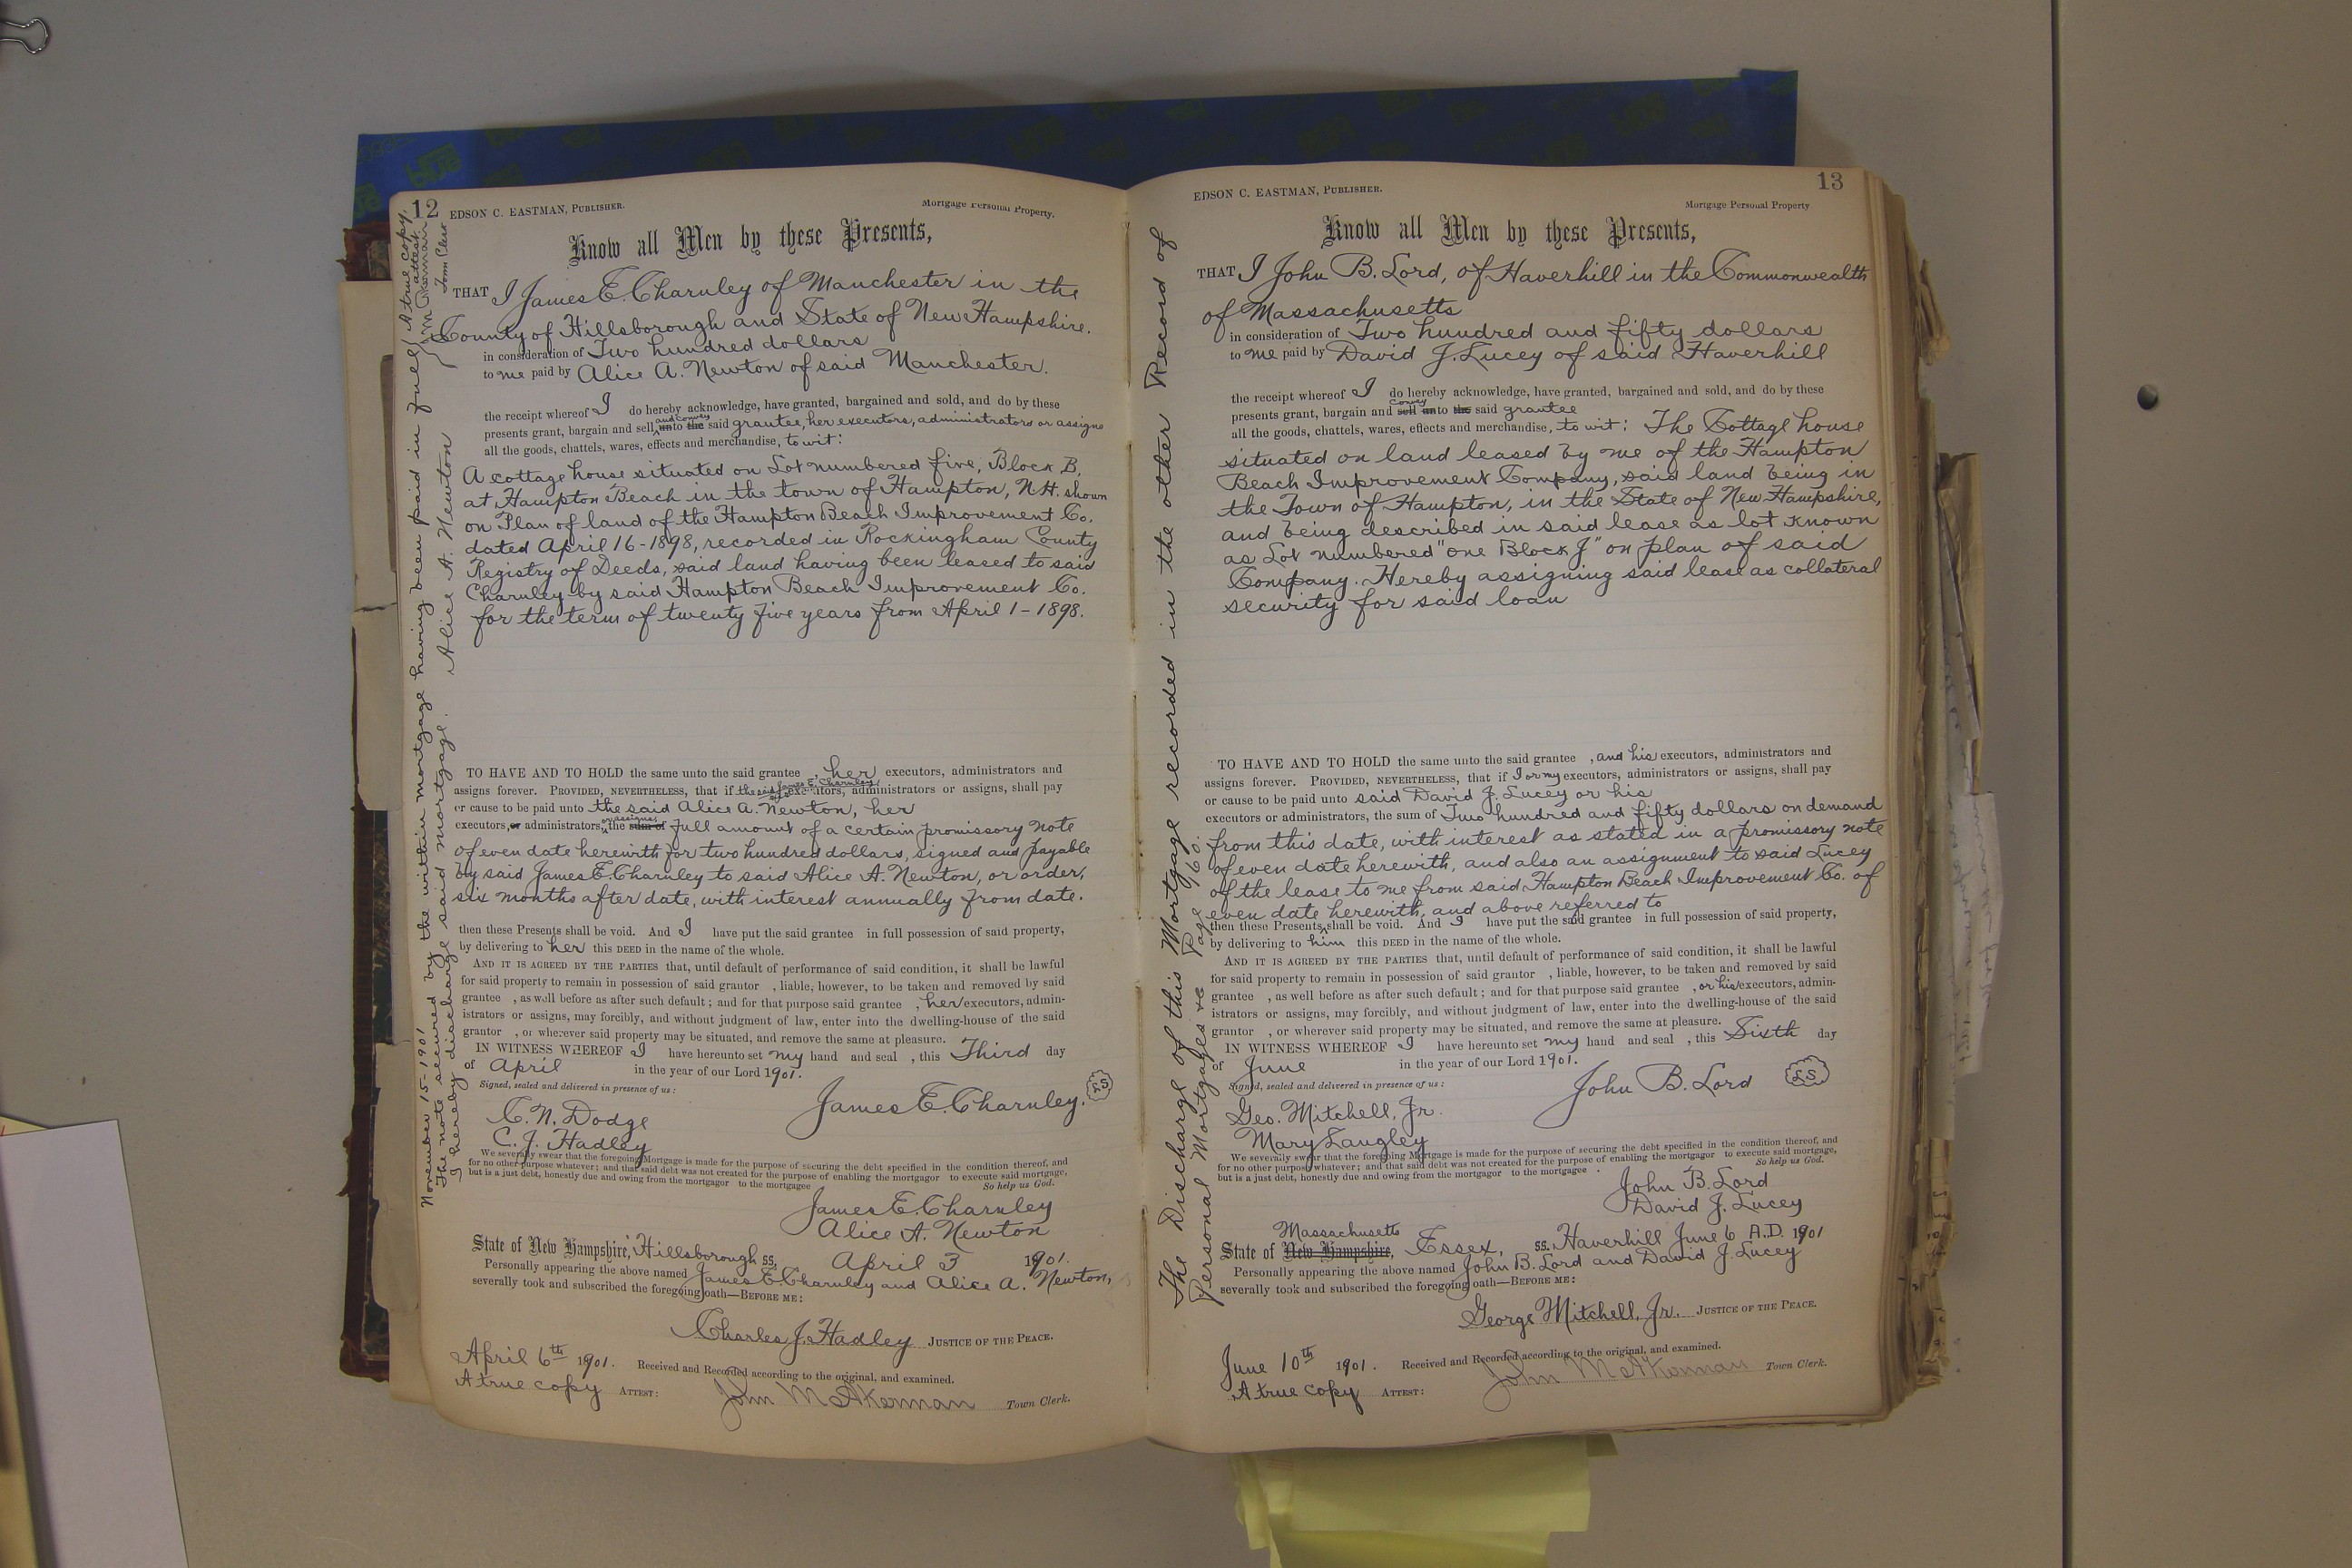 12 EDSON C. EASTMAN, PUBLISHER. Mortgage Personal Property.
Know all Men by these Presents,
THAT I James E. Charnley of Manchester in the
County of Hillsborough and State of New Hampshire.
in consideration of Two hundred dollars
to me paid by Alice A. Newton of said Manchester.
the receipt whereof I do hereby acknowledge, have granted, bargained and sold, and do by these
and convey
presents grant, bargain and sell unto the said grantee, her executors, administrators or assigns
all the goods, chattels, wares, effects and merchandise, to wit:
A cottage house situated on Lot numbered five, Block B,
at Hampton Beach in the town of Hampton, N.H. shown
on Plan of land of the Hampton Beach Improvement Co.
dated April 16-1898, recorded in Rockingham County
Registry of Deeds, said land having been leased to said
Charnley by said Hampton Beach Improvement Co.
for the term of twenty five years from April 1-1898.
TO HAVE AND TO HOLD the same unto the said grantee, her executors, administrators and
assigns forever. PROVIDED, NEVERTHELESS, that if the said James E. Charnley executors, administrators or assigns, shall pay
or cause to be paid unto the said Alice A. Newton, her
or assigns
executors, or administrators, the sum of full amount of a certain promissory note
of even date herewith for two hundred dollars, signed and payable
by said James E. Charnley to said Alice A. Newton, or order,
six months after date, with interest annually from date.
then these Presents shall be void. And I have put the said grantee in full possession of said property,
by delivering to her this DEED in the name of the whole.
AND IT IS AGREED BY THE PARTIES that, until default of performance of said condition, it shall be lawful
for said property to remain in possession of said grantor , liable, however, to be taken and removed by said
grantee , as well before as after such default; and for that purpose said grantee , her executors, admin-
istrators or assigns, may forcibly, and without judgment of law, enter into the dwelling-house of the said
grantor , or wherever said property may be situated, and remove the same at pleasure.
IN WITNESS WHEREOF I have hereunto set my hand and seal , this Third day
of April in the year of our Lord 1901.
Signed, sealed and delivered in presence of us:
James E. Charnley. LS
C. N. Dodge
C. J. Hadley
We severally swear that the foregoing Mortgage is made for the purpose of securing the debt specified in the condition thereof, and
for no other purpose whatever; and that said debt was not created for the purpose of enabling the mortgagor to execute said mortgage,
but is a just debt, honestly due and owing from the mortgagor to the mortgagee So help us God.
James E. Charnley
Alice A. Newton
State of New Hampshire, Hillsborough ss. April 3 1901.
Personally appearing the above named James E. Charnley and Alice A. Newton,
severally took and subscribed the foregoing oath—BEFORE ME:
Charles J. Hadley JUSTICE OF THE PEACE.
April 6th 1901. Received and Recorded according to the original, and examined.
A true copy ATTEST: John M Akerman Town Clerk.
November 15-1901
The note secured by the within mortgage having been paid in full
I hereby discharge said mortgage. Alice A. Newton
A true copy.
attest
Town Clerk
EDSON C. EASTMAN, PUBLISHER. 13
Mortgage Personal Property
Know all Men by these Presents,
THAT I John B. Lord, of Haverhill in the Commonwealth
of Massachusetts
in consideration of Two hundred and fifty dollars
to me paid by David J. Lucey of said Haverhill
the receipt whereof I do hereby acknowledge, have granted, bargained and sold, and do by these
convey
presents grant, bargain and sell unto the said grantee
all the goods, chattels, wares, effects and merchandise, to wit: The Cottage house
situated on land leased by me of the Hampton
Beach Improvement Company, said land being in
the Town of Hampton, in the State of New Hampshire,
and being described in said lease as lot known
as Lot numbered "one Block J" on plan of said
Company. Hereby assigning said lease as collateral
security for said loan
TO HAVE AND TO HOLD the same unto the said grantee , and his executors, administrators and
assigns forever. PROVIDED, NEVERTHELESS, that if I or my executors, administrators or assigns, shall pay
or cause to be paid unto said David J. Lucey or his
executors or administrators, the sum of Two hundred and fifty dollars on demand
from this date, with interest as stated in a promissory note
of even date herewith, and also an assignment to said Lucey
of the lease to me from said Hampton Beach Improvement Co. of
even date herewith, and above referred to
then these Presents shall be void. And I have put the said grantee in full possession of said property,
by delivering to him this DEED in the name of the whole.
AND IT IS AGREED BY THE PARTIES that, until default of performance of said condition, it shall be lawful
for said property to remain in possession of said grantor , liable, however, to be taken and removed by said
grantee , as well before as after such default; and for that purpose said grantee , or his executors, admin-
istrators or assigns, may forcibly, and without judgment of law, enter into the dwelling-house of the said
grantor , or wherever said property may be situated, and remove the same at pleasure.
IN WITNESS WHEREOF I have hereunto set my hand and seal , this Sixth day
of June in the year of our Lord 1901.
Signed, sealed and delivered in presence of us:
John B. Lord LS
Geo. Mitchell, Jr.
Mary Langley
We severally swear that the foregoing Mortgage is made for the purpose of securing the debt specified in the condition thereof, and
for no other purpose whatever; and that said debt was not created for the purpose of enabling the mortgagor to execute said mortgage,
but is a just debt, honestly due and owing from the mortgagor to the mortgagee . So help us God.
John B. Lord
David J. Lucey
Massachusetts
State of New Hampshire, Essex, ss. Haverhill June 6 A.D. 1901
Personally appearing the above named John B. Lord and David J. Lucey
severally took and subscribed the foregoing oath—BEFORE ME:
George Mitchell, Jr. JUSTICE OF THE PEACE.
June 10th 1901. Received and Recorded according to the original, and examined.
A true copy ATTEST: John M Akerman Town Clerk.
The Discharge of this Mortgage recorded in the other Record of
Personal Mortgages &c Page 160.